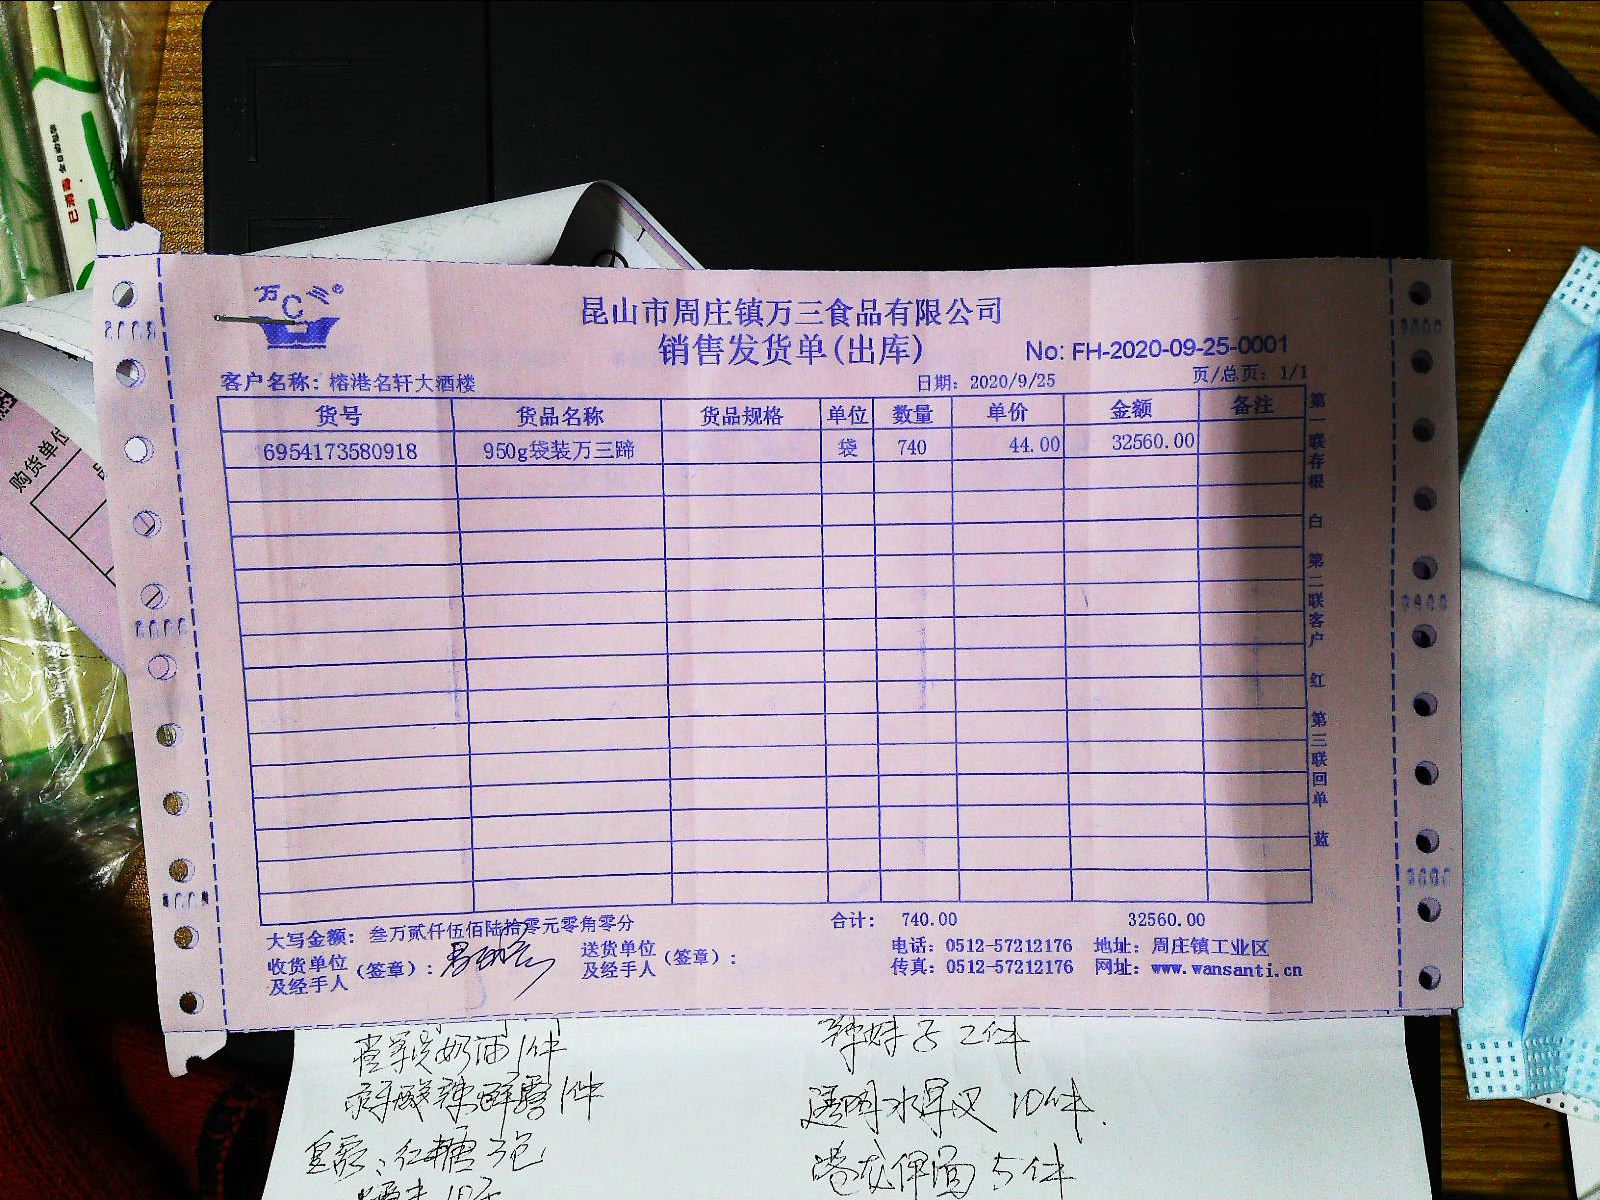 已消毒
购货单位
万三®
昆山市周庄镇万三食品有限公司
销售发货单(出库)
No: FH-2020-09-25-0001
客户名称: 榕港名轩大酒楼
日期: 2020/9/25
页/总页: 1/1
货号 货品名称 货品规格 单位 数量 单价 金额 备注
6954173580918 950g袋装万三蹄 袋 740 44.00 32560.00
第一联存根 白 第二联客户 红 第三联回单 蓝
合计: 740.00 32560.00
大写金额: 叁万贰仟伍佰陆拾零元零角零分
收货单位及经手人(签章):
送货单位及经手人(签章):
电话: 0512-57212176 地址: 周庄镇工业区
传真: 0512-57212176 网址: www.wansanti.cn
辣妹子 2件
1件
1件
透明水果叉 10件
红糖 3包
5件